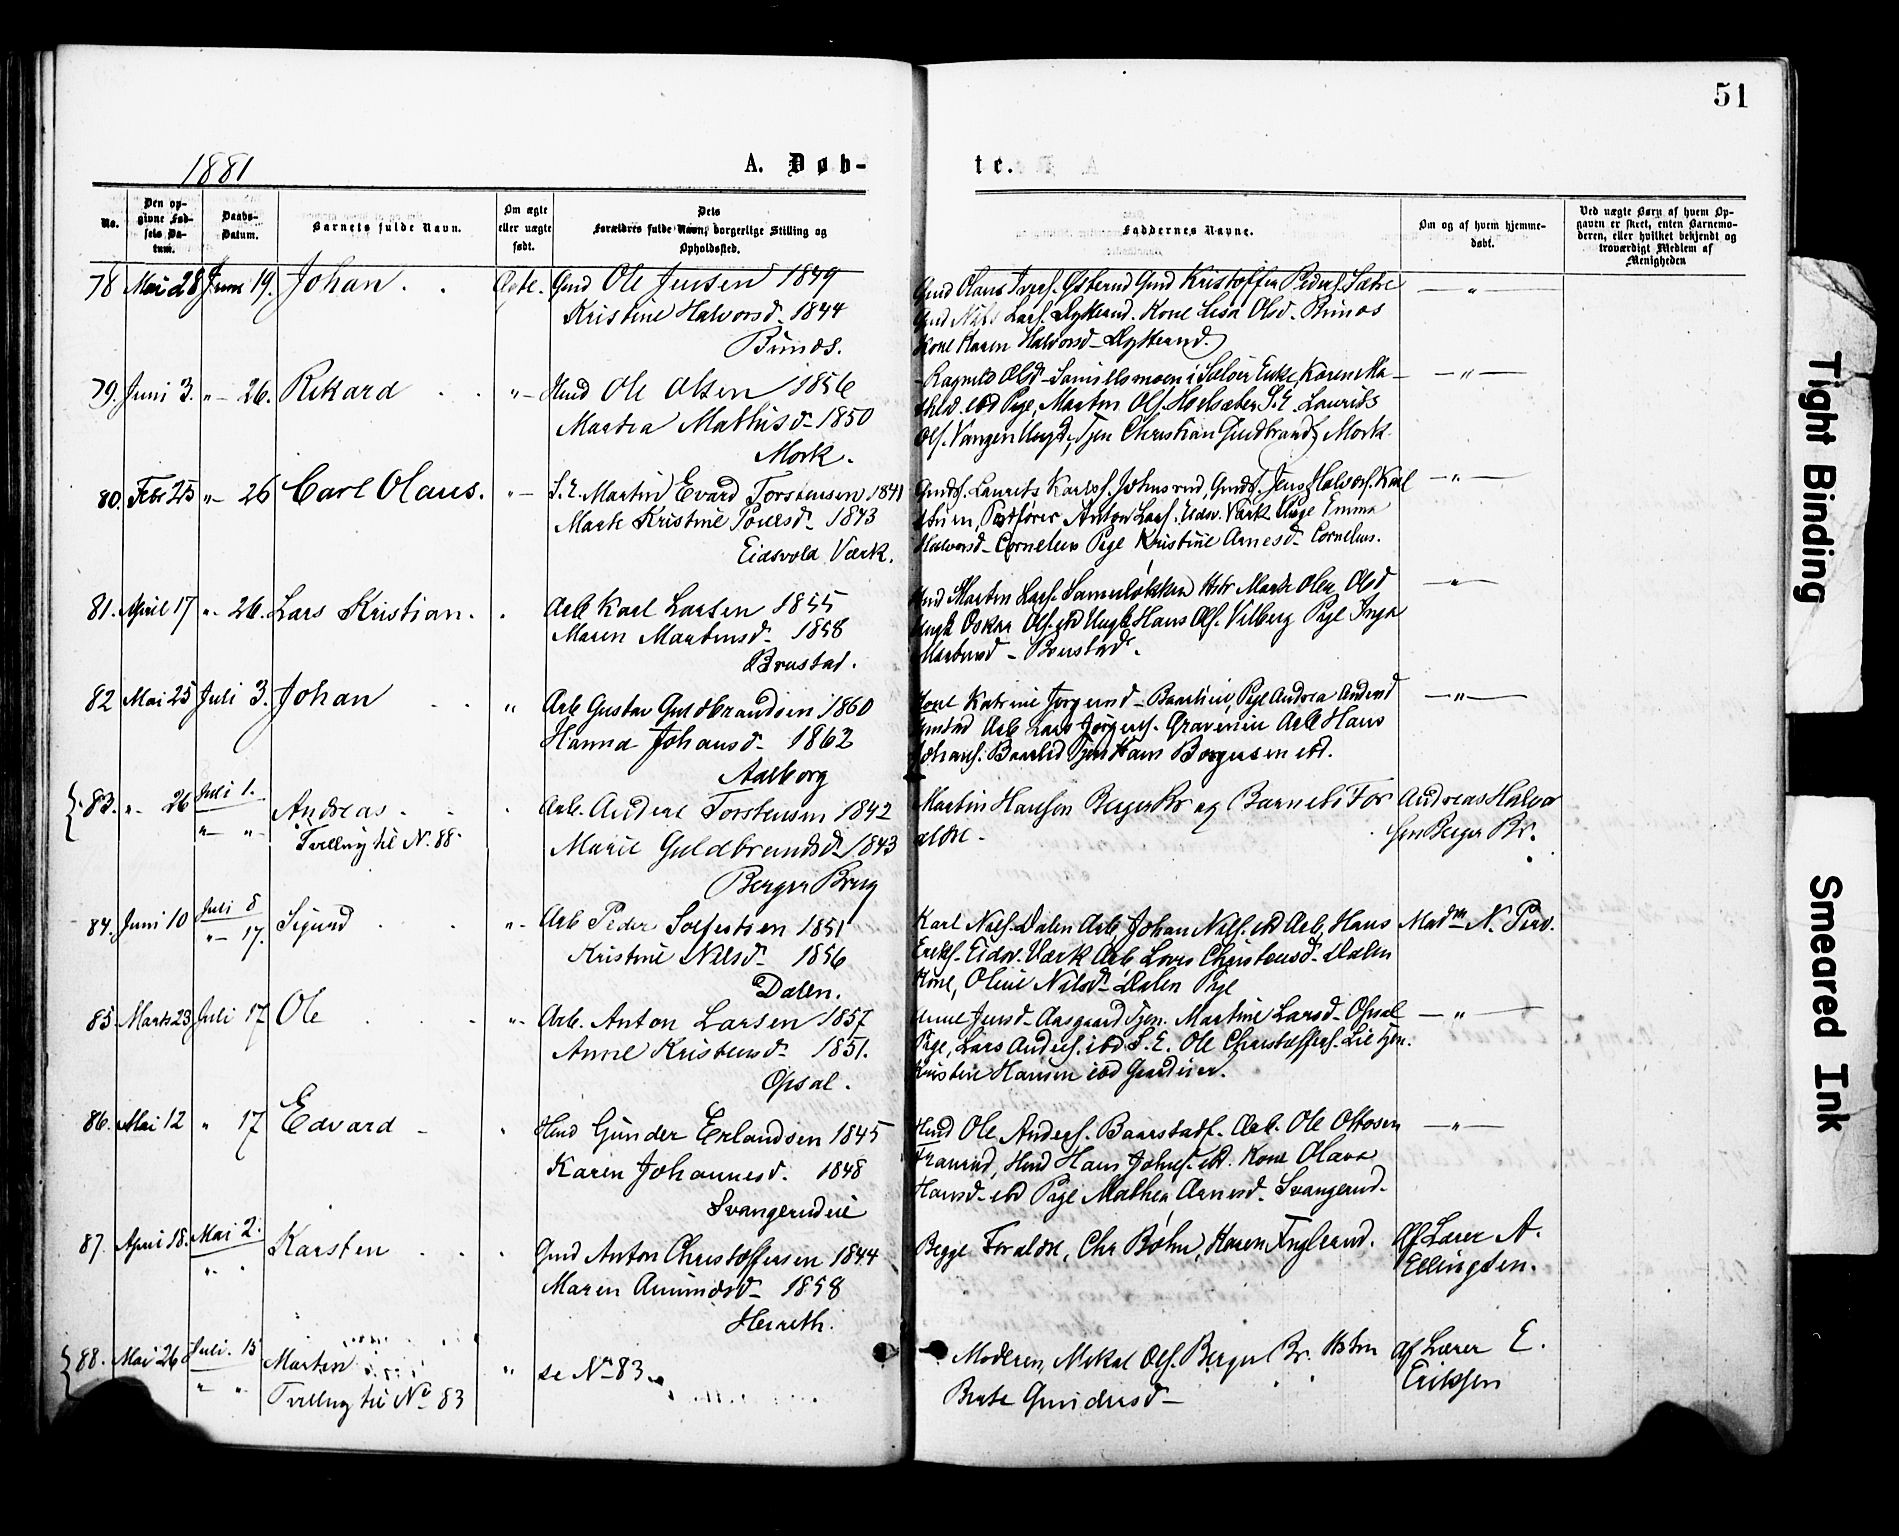 51
1881
A. Døb-
te.
No.
Den op-
givne Fød-
sels Da-
tum.
Daabs-
Datum.
Barnets fulde Navn.
Om ægte
eller uægte
født.
Dets
Forældres fulde Navn, borgerlige Stilling og
Opholdssted.
Faddernes Navne.
Om og af hvem hjemme-
døbt.
Ved uægte Børn af hvem Op-
gaven er skeet, enten Barnemo-
deren, eller hvilket bekjendt og
troværdigt Medlem af
Menigheden
78 Mai 28 Juni 19. Johan. Ægte. Gmd Ole Jensen 1849
Kristine Halvorsd. 1844
Bunæs.
Gmd Olaus Ivers. Østerud Gmd Kristoffer Peders. Sætre — " —
Gmd Nils Lars. Dytterud. Kone Lisa Olsd. Bunæs
Kone Karen Halvorsd - Dytterud.
79. Juni 3. " - 26. Rikard " - Hmd Ole Olsen 1856
Martea Mathisd - 1850
Mork.
- Ragnild Olsd - i Soløer Enke, Karen Ma - — " —
thild. ibd Pige, Martin Ols. S. E. Laurits
Ols. Vangen Ungk, Tjen Christian Guldbrands Mork.
80. Febr 25 " - 26 Carl Olaus. " - S. E. Martin Evard Torstensen 1841
Marte Kristine Poulsd - 1843
Eidsvold Værk.
Gmds. Laurits Karlss. Johnsrud, Gmds. Jens Halvors. Karl — " —
stuen, Postfører Anton Lars. Eidsv. Værk Pige Emma
Halvorsd - Cornelius Pige Kristine Arnesd - Cornelius.
81. April 17 " - 26. Lars Kristian. Arb Karl Larsen 1855
Maren Martinsd - 1858
Brustad.
Hmd Martin Lars. Marte Olea Olsd — " —
Ungk Oskar Ols. ibd Ungk Hans Ols. Vilberg Pige Inga
Martinsd - Brustad.
82 Mai 25 Juli 3. Johan " Arb Gustav Guldbrandsen 1860
Hanna Johansd - 1862
Aalborg
Kone Katrine Jørgensd - Pige Andrea Andersd — " —
Arb Lars Jørgens. Arb Hans
Johans. Tjen Hans Borgersen ibd.
83. " - 26 Juli 1. Andreas. Arb. Anders Torstensen 1842
" - " - Tvilling til N. 88
Marie Guldbrandsd - 1843
Berger Brug
Martin Hansson Berger Br og Barnets For
ældre -
Andreas Halvor
sen Berger Br.
84. Juni 10 Juli 8 Sigurd " - Arb Peder Solfestsen 1851
" - 17.
Kristine Nilsd - 1856
Dalen.
Karl Nils. Dalen Arb, Johan Nils. ibd Arb, Hans
Eriks. Eidsv. Værk Arb Lovis Christensd - Dalen
Kone, Oline Nilsd - Dalen Pige
Madm N.
85 Marts 23 Juli 17 Ole " - Arb. Anton Larsen 1857
Anne Kristensd - 1851.
Opsal.
Anne Jensd - Aasgaard Tjen. Martine Larsd - Opsal — " —
Pige, Lars Anders. ibd S. E. Ole Christoffers. Lie Tjen.
Kristine Hansen ibd
86. Mai 12 " 17 Edvard - Hmd Gunder Erlandsen 1845
Karen Johannesd. 1848
Svangerudeie
Hmd Ole Anders. Arb. Ole Ottosen — " —
Hmd Hans Johns. ibd. Kone Olava
Hansd - ibd Pige Mathea Arnesd. Svangerud.
87. April 18. Mai 2. Karsten. Gmd Anton Christoffersen 1844
" "
Maren Amundsd - 1858
Herreth.
Begge Forældre, Chr Bøhn, Karen Englerud.
Af Lærer A.
Ellingsen.
88. Mai 26 Juli. 15 Martin " se No 83.
" "
Tvilling til No 83
Moderen, Mikal Ols. Berger Br.
Berte Gundersd -
af Lærer E.
Eriksen
Tight Binding
Smeared Ink